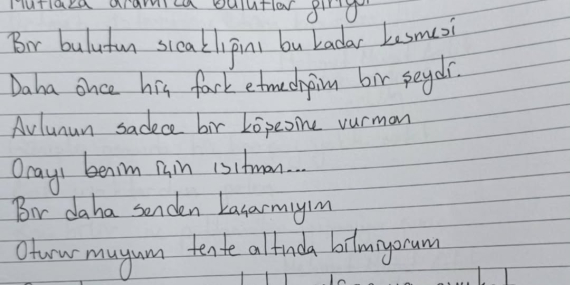 Mutlaka aramıza bulutlar giriyor
Bir bulutun sıcaklığını bu kadar kesmesi
Daha önce hiç fark etmediğim bir şeydi.
Avlunun sadece bir köşesine vurman
Orayı benim için ısıtman...
Bir daha senden kaçarmıyım
Oturur muyum tente altında bilmiyorum